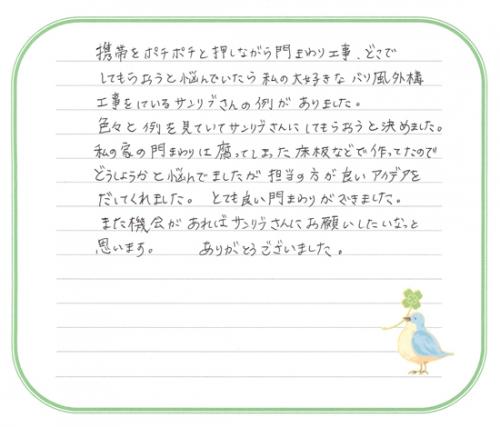 携帯をポチポチと押しながら門まわり工事、どこで
してもらおうと悩んでいたら私の大好きなバリ風外構
工事をしているサンリブさんの例がありました。
色々と例を見ていてサンリブさんにしてもらおうと決めました。
私の家の門まわりは腐ってしまった床板などで作ってたので
どうしようかと悩んでましたが担当の方が良いアイデアを
だしてくれました。とても良い門まわりができました。
また機会があればサンリブさんにお願いしたいなっと
思います。 ありがとうございました。